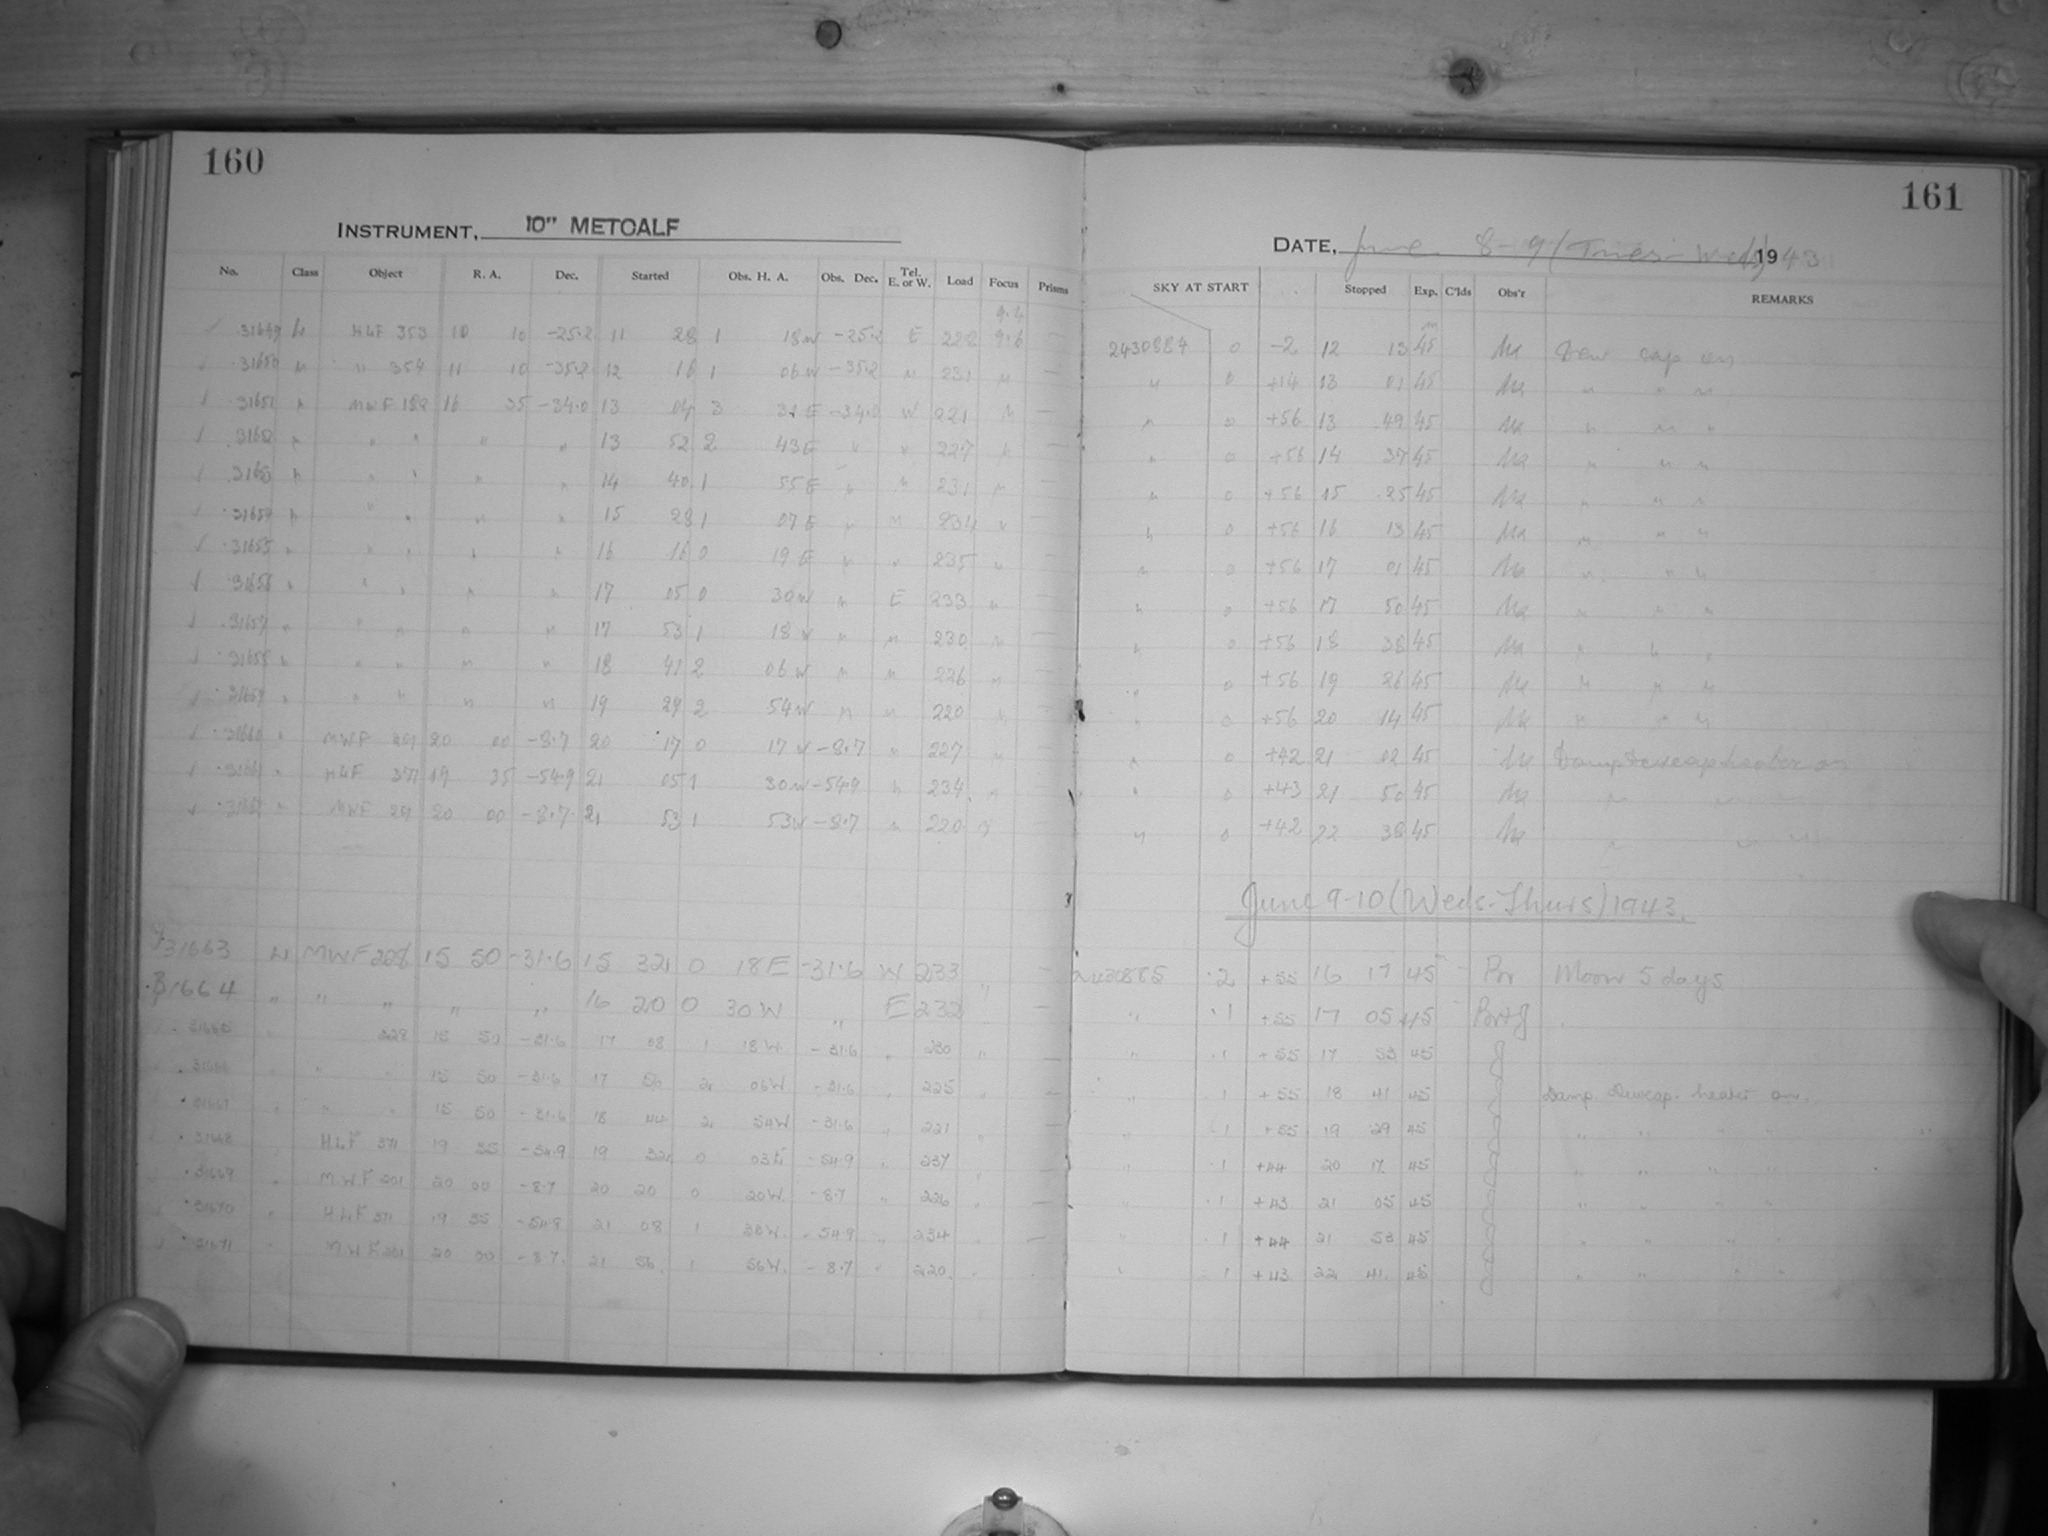 160
INSTRUMENT, 10" METCALF
No. Class Object R. A. Dec. Started Obs. H. A. Obs. Dec. Tel. E. or W. Load Focus Prisms
9.4
31649 HLF 353 10 10 -25.2 11 28 1 18W -25.2 E 222 9.6 —
31650 " " 354 11 10 -35.2 12 16 1 06W -35.2 " 231 " —
31651 " MWF 189 16 35 -34.0 13 04 3 31E -34.0 W 221 " —
31652 " " " " " 13 52 2 43E " " 227 "
31653 " " " " " 14 40 1 55E " " 231 "
31654 " " " " " 15 28 1 07E " " 234 "
31655 " " " " " 16 16 0 19E " " 235 "
31656 " " " " " 17 05 0 30W " E 233 "
31657 " " " " " 17 53 1 18W " " 230 "
31658 " " " " " 18 41 2 06W " " 226 "
31659 " " " " " 19 29 2 54W " " 220 "
31660 " MWF 201 20 00 -8.7 20 17 0 17W -8.7 " 227 "
31661 " HLF 371 19 35 -54.9 21 05 1 30W -54.9 " 234 "
31662 " MWF 201 20 00 -8.7 21 53 1 53W -8.7 " 220
31663 MWF 228 15 50 -31.6 15 32 0 18E -31.6 W 233 " —
31664 " " " " " 16 20 0 30W " E 232 —
31665 " 228 15 50 -31.6 17 08 1 18W -31.6 " 230 "
31666 " " 15 50 -31.6 17 56 2 06W -31.6 " 225 " —
31667 " " " 15 50 -31.6 18 44 2 54W -31.6 " 221 "
31668 HLF 371 19 35 -54.9 19 32 0 03E -54.9 " 237 "
31669 " MWF 201 20 00 -8.7 20 20 0 20W -8.7 " 226 " —
31670 " HLF 371 19 35 -54.9 21 08 1 33W -54.9 " 234 " —
31671 MWF 201 20 00 -8.7 21 56 1 56W -8.7 " 220
161
DATE, June 8-9 (Tues-Weds) 1943
SKY AT START Stopped Exp. C'lds Obs'r REMARKS
2430884 0 -2 12 13 45 m Dew cap on
" 0 +14 13 01 45 " " "
" 0 +56 13 49 45 " " "
" 0 +56 14 37 45 " " "
" 0 +56 15 25 45 " " "
" 0 +56 16 13 45 " " "
" 0 +56 17 01 45 " " "
" 0 +56 17 50 45 " " "
" 0 +56 18 38 45 " " "
" 0 +56 19 26 45 " " "
" 0 +56 20 14 45 " " "
" 0 +42 21 02 45 Damp Dewcap heater on
" 0 +43 21 50 45 " "
" 0 +42 22 38 45 " " "
June 9-10 (Weds-Thurs) 1943.
2430885 .2 +55 16 17 45 m Moon 5 days
" .1 +55 17 05 45
" .1 +55 17 53 45
" .1 +55 18 41 45 Damp. Dewcap. heater on.
" .1 +55 19 29 45 " " " " "
" .1 +44 20 17 45 " " " "
" .1 +43 21 05 45 " " " "
" .1 +44 21 53 45 " " " "
" .1 +43 22 41 45 " " " "